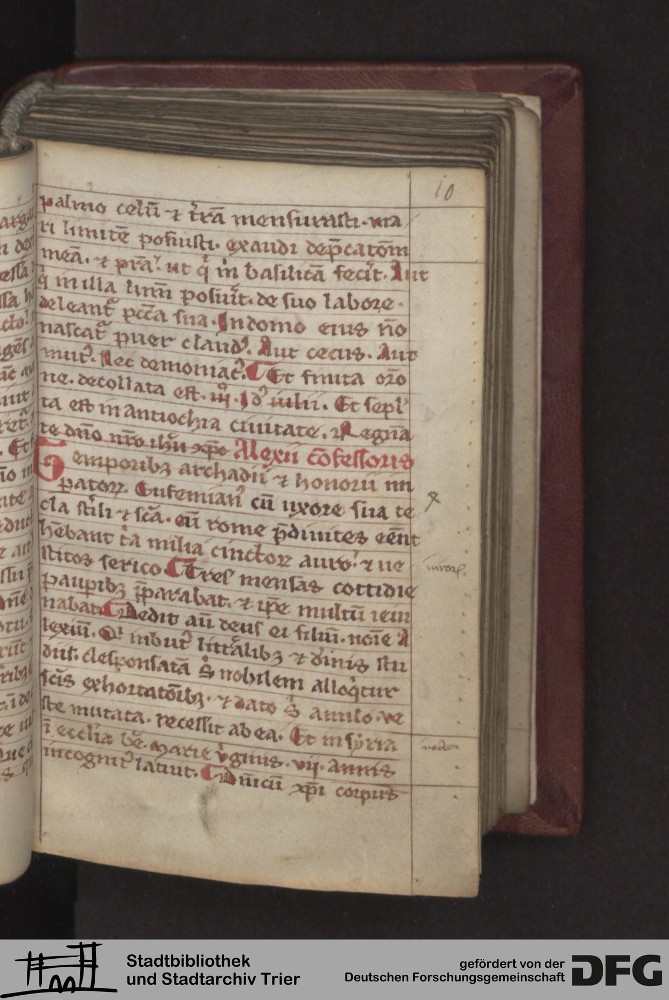 10
palmo celū ⁊ t̄rā mensurasti. ma
ri limitē posuisti. exaudi dep̄catōm̄
meā. ⁊ p̄ra. ut q̄ in basilicā fecit. Aut
q̄ in illa lum̄ posuit. de suo labore.
deleant̄ pcc̄a sua. In domo eius nō
nascat̄ puer claud⁹. Aut cecus. Aut
mut⁹. Nec demoniac⁹. Et finita orō
ne. decollata est. iij. Id⁹ iulii. Et sepl̄
ta est in antiochia ciuitate. Regnā
te dn̄o nr̄o ih̄u xp̄o Alexii cōfessoris
Temporibꝫ archadii ⁊ honorii im
patorꝝ. Eufemian⁹ cū uxore sua te
cla stili ⁊ scā. cū rome p̄diuites eēnt
hēbant t̄a milia cinctorꝝ auro ⁊ ue
stitos serico. Tres mensas cottidie
paupibꝫ p̄parabat. ⁊ ip̄e multū ieiu
nabat. Dedit aū deus ei filiū. noīe A
lexiū. Qi inbut⁹ litt̄alibꝫ ⁊ diuinis stu
diis. desponsatā s̄ nobilem alloq̄tur
scīs exhortatōibꝫ. ⁊ dato s̄ anulo. ve
ste mutata. recessit ab ea. Et in syria
ī eccl̄ia bē. marie v̄ginis. vij. annis
incognit⁹ latuit. Dn̄icū xp̄i corpus
Stadtbibliothek
und Stadtarchiv Trier
gefördert von der
Deutschen Forschungsgemeinschaft
DFG